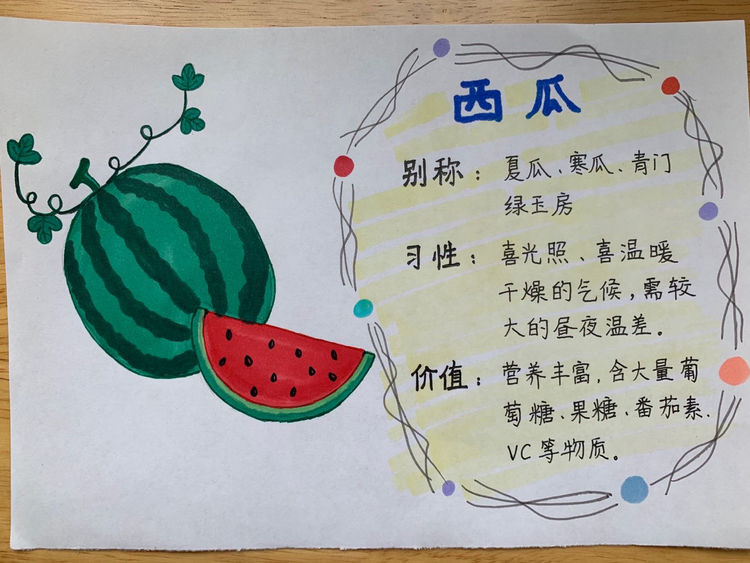 西瓜
别称：夏瓜、寒瓜、青门
绿玉房
习性：喜光照、喜温暖
干燥的气候，需较
大的昼夜温差。
价值：营养丰富，含大量葡
萄糖、果糖、番茄素、
VC等物质。